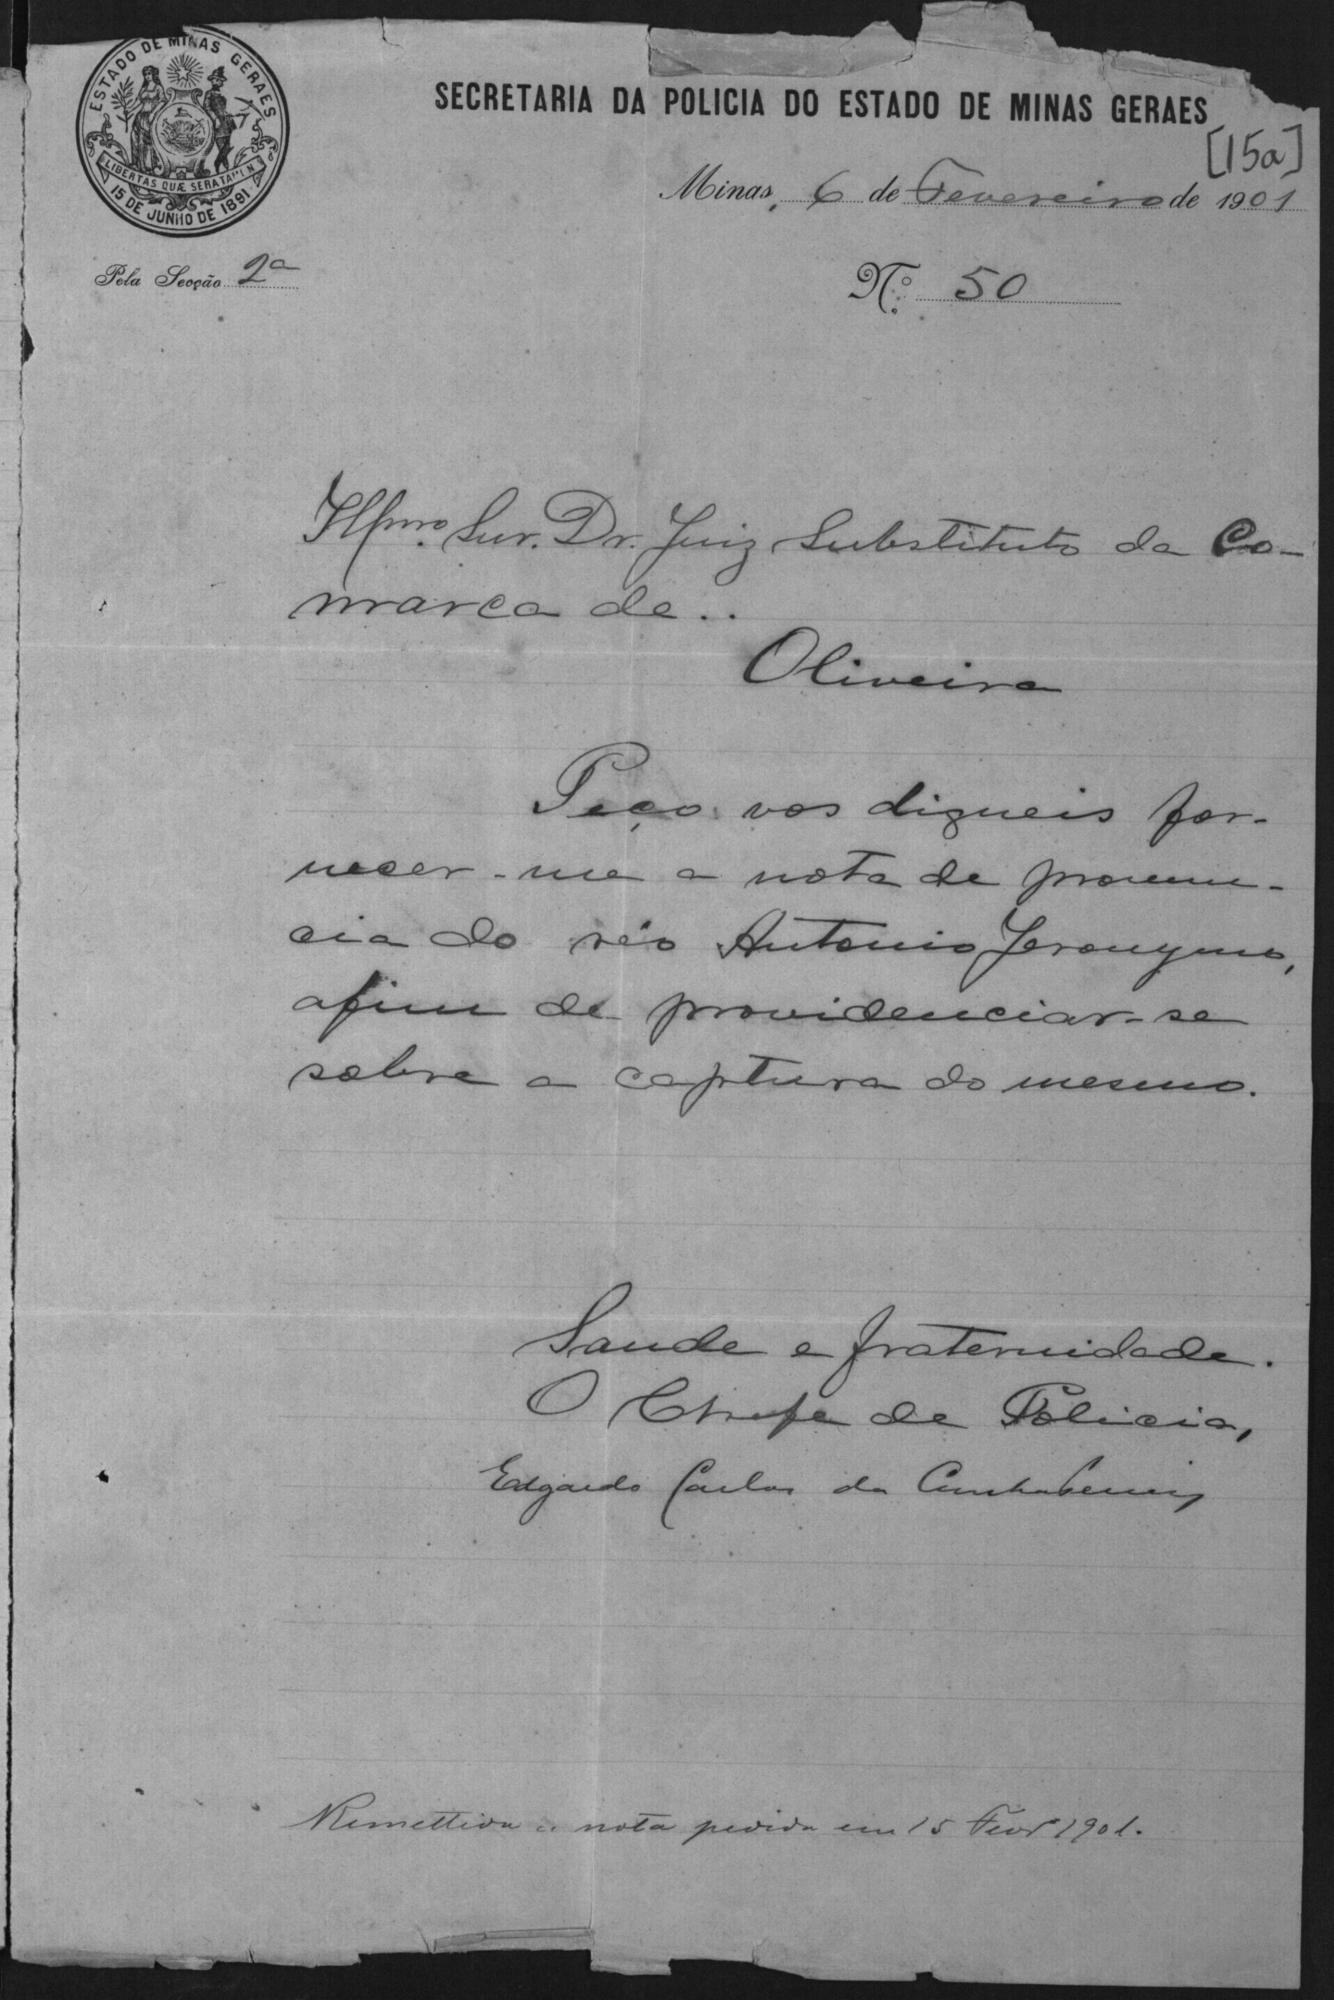 ESTADO DE MINAS GERAES
LIBERTAS QUÆ SERA TAMEN
15 DE JUNHO DE 1891
SECRETARIA DA POLICIA DO ESTADO DE MINAS GERAES
[15a]
Minas, 6 de Fevereiro de 1901
Pela Secção 2ª
N.º 50
Illmo. Snr. Dr. Juiz Substituto da Co-
marca de..
Oliveira
Peço vos digneis for-
necer-me a nota de pronun-
cia do réo Antonio Jeronymo,
afim de providenciar-se
sobre a captura do mesmo.
Saude e fraternidade.
O Chefe de Policia,
Edgardo Carlos da Cunha
Remettida a nota pedida em 15 Fevr 1901.